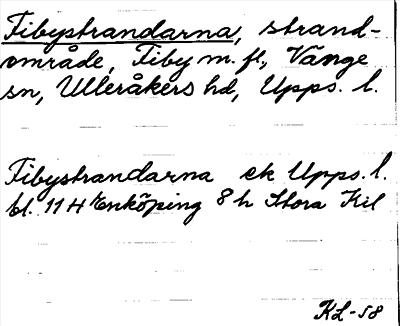 Fibystrandarna, strand-
område, Fiby m. fl., Vänge
sn, Ulleråkers hd, Upps. l.
Fibystrandarna ek Upps. l.
bl. 11 H Enköping 8 h Stora Kil
KL-58